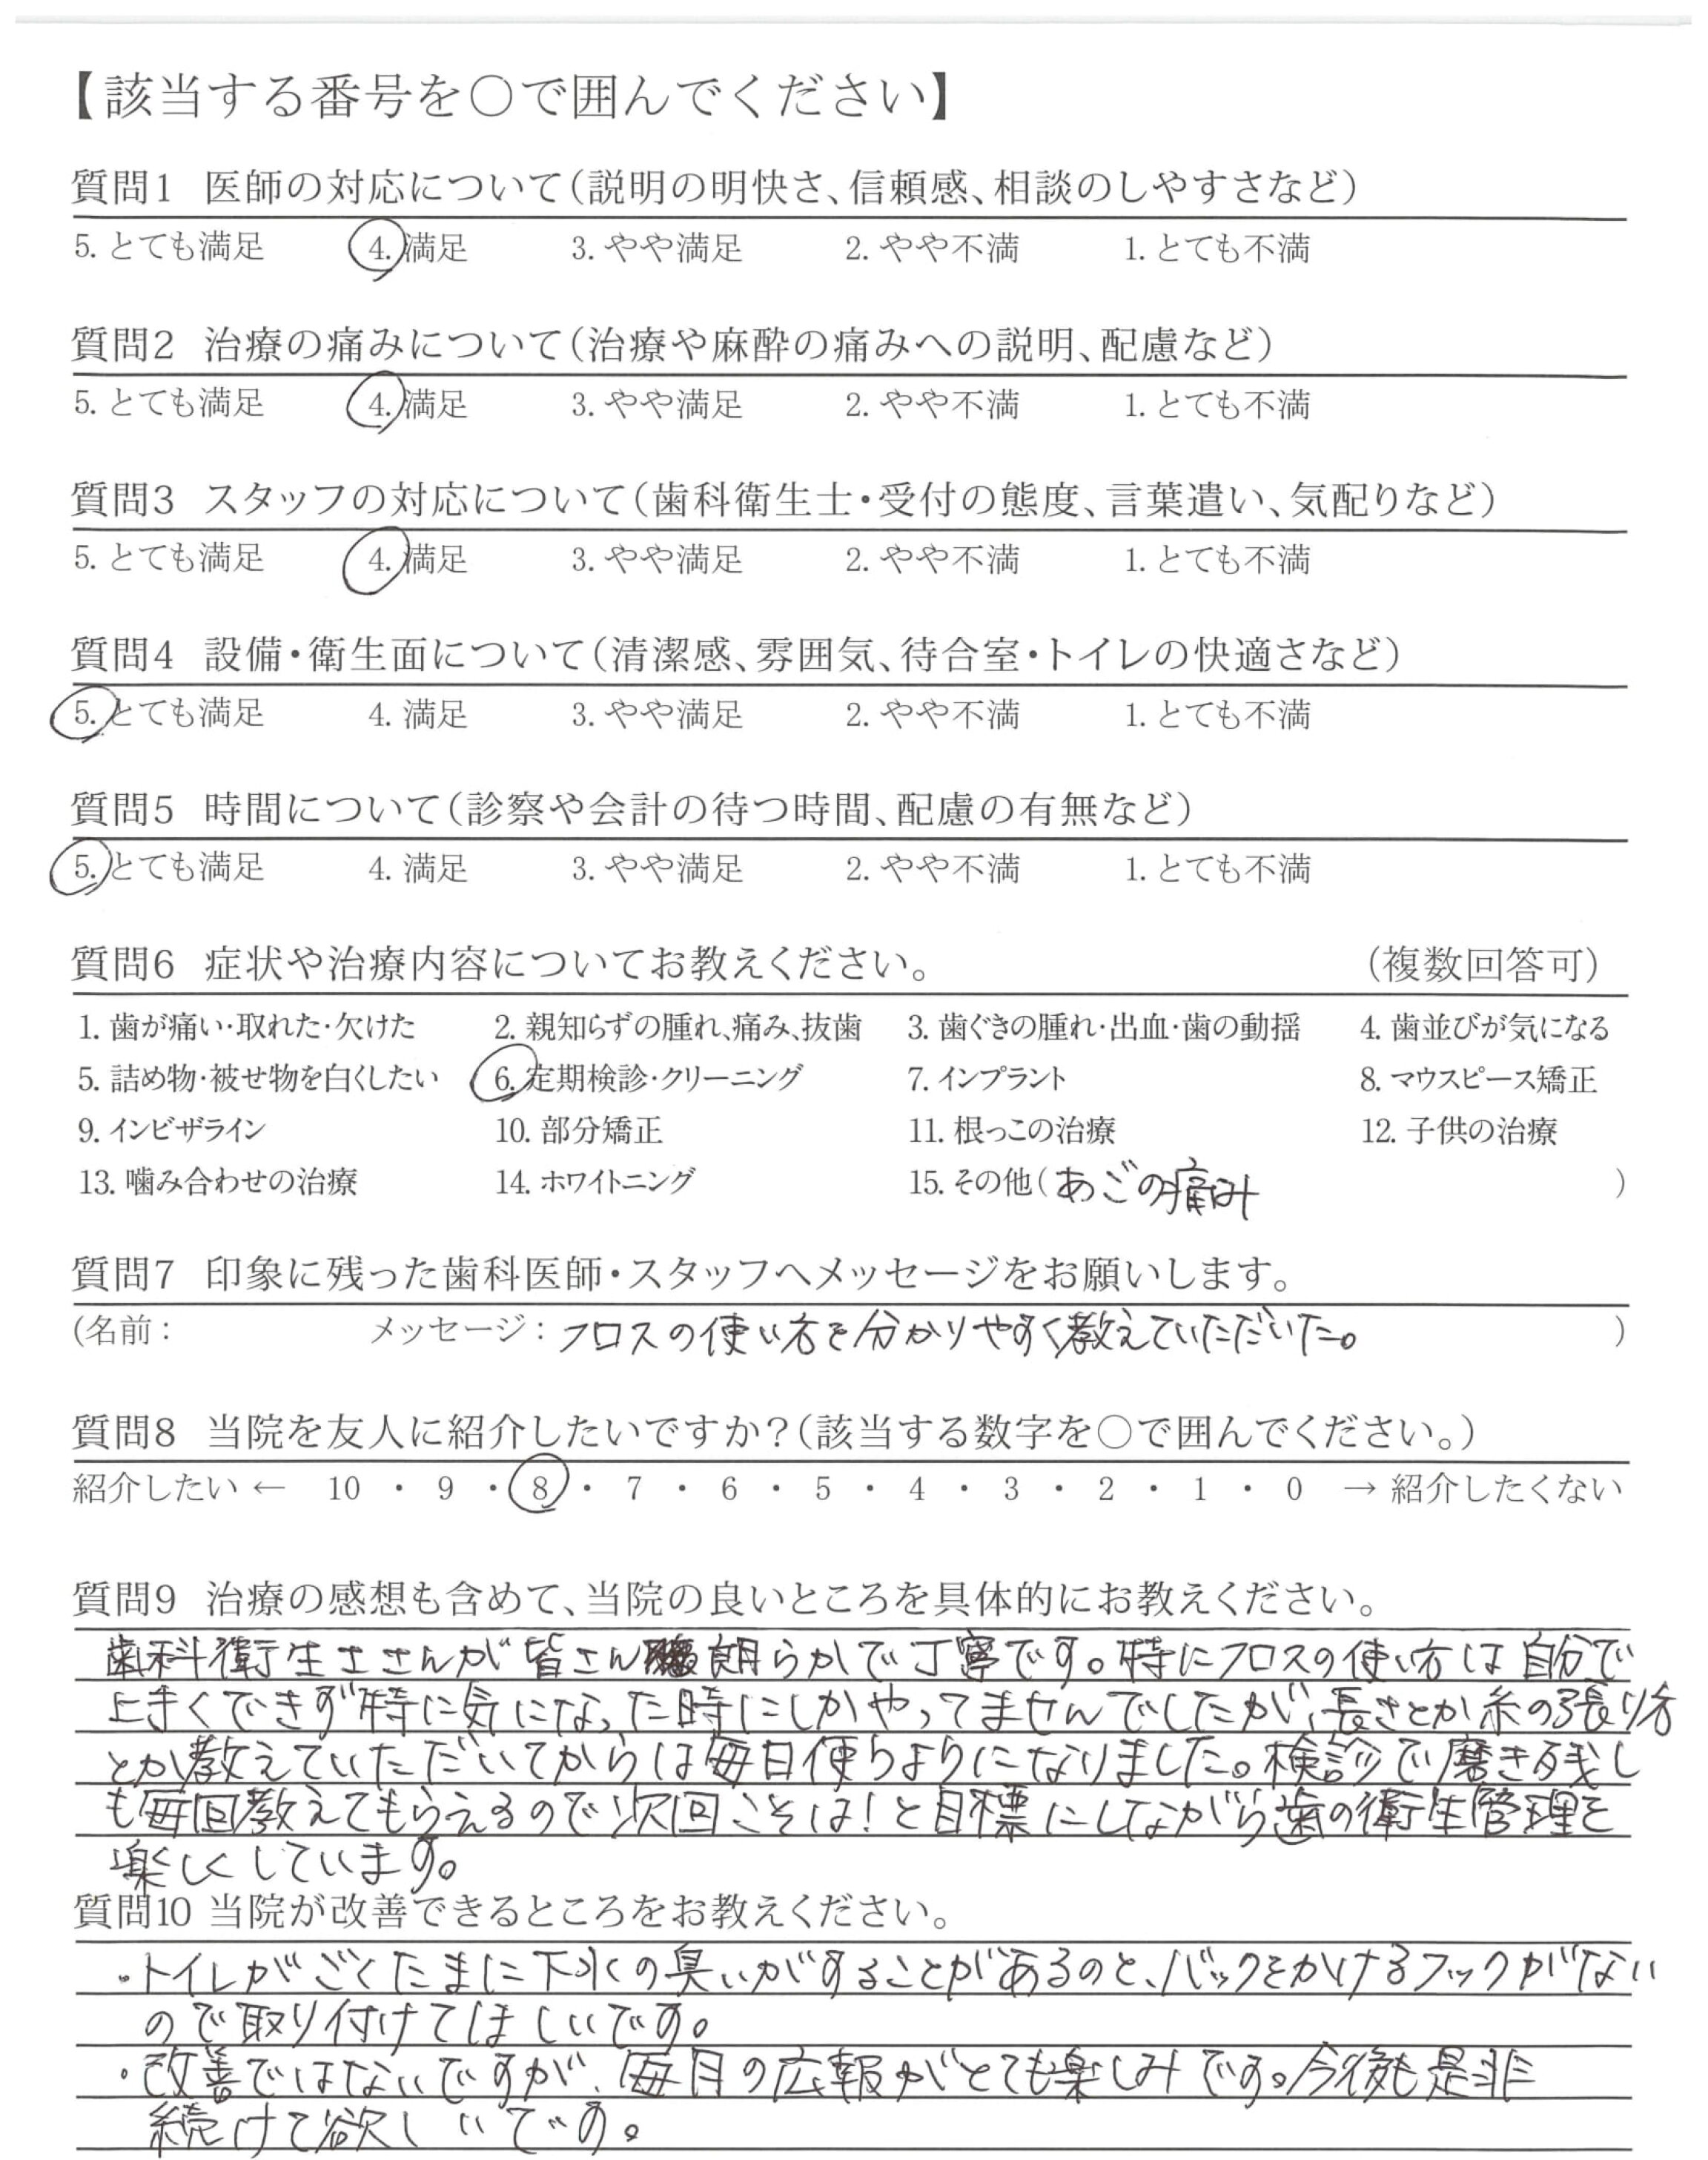 【該当する番号を○で囲んでください】
質問1 医師の対応について（説明の明快さ、信頼感、相談のしやすさなど）
5. とても満足 4. 満足 3. やや満足 2. やや不満 1. とても不満
質問2 治療の痛みについて（治療や麻酔の痛みへの説明、配慮など）
5. とても満足 4. 満足 3. やや満足 2. やや不満 1. とても不満
質問3 スタッフの対応について（歯科衛生士・受付の態度、言葉遣い、気配りなど）
5. とても満足 4. 満足 3. やや満足 2. やや不満 1. とても不満
質問4 設備・衛生面について（清潔感、雰囲気、待合室・トイレの快適さなど）
5. とても満足 4. 満足 3. やや満足 2. やや不満 1. とても不満
質問5 時間について（診察や会計の待つ時間、配慮の有無など）
5. とても満足 4. 満足 3. やや満足 2. やや不満 1. とても不満
質問6 症状や治療内容についてお教えください。 （複数回答可）
1. 歯が痛い・取れた・欠けた 2. 親知らずの腫れ、痛み、抜歯 3. 歯ぐきの腫れ・出血・歯の動揺 4. 歯並びが気になる
5. 詰め物・被せ物を白くしたい 6. 定期検診・クリーニング 7. インプラント 8. マウスピース矯正
9. インビザライン 10. 部分矯正 11. 根っこの治療 12. 子供の治療
13. 噛み合わせの治療 14. ホワイトニング 15. その他（あごの痛み ）
質問7 印象に残った歯科医師・スタッフへメッセージをお願いします。
（名前： メッセージ：フロスの使い方を分かりやすく教えていただいた。 ）
質問8 当院を友人に紹介したいですか？（該当する数字を○で囲んでください。）
紹介したい ← 10 ・ 9 ・ 8 ・ 7 ・ 6 ・ 5 ・ 4 ・ 3 ・ 2 ・ 1 ・ 0 → 紹介したくない
質問9 治療の感想も含めて、当院の良いところを具体的にお教えください。
歯科衛生士さんが皆さん朗らかで丁寧です。特にフロスの使い方は自分で
上手くできず特に気になった時にしかやってませんでしたが、長さとか糸の張り方
とか教えていただいてからは毎日使うようになりました。検診で磨き残し
も毎回教えてもらえるので次回こそは！と目標にしながら歯の衛生管理を
楽しくしています。
質問10 当院が改善できるところをお教えください。
・トイレがごくたまに下水の臭いがすることがあるのと、バックをかけるフックがない
ので取り付けてほしいです。
・改善ではないですが、毎月の広報がとても楽しみです。今後も是非
続けて欲しいです。